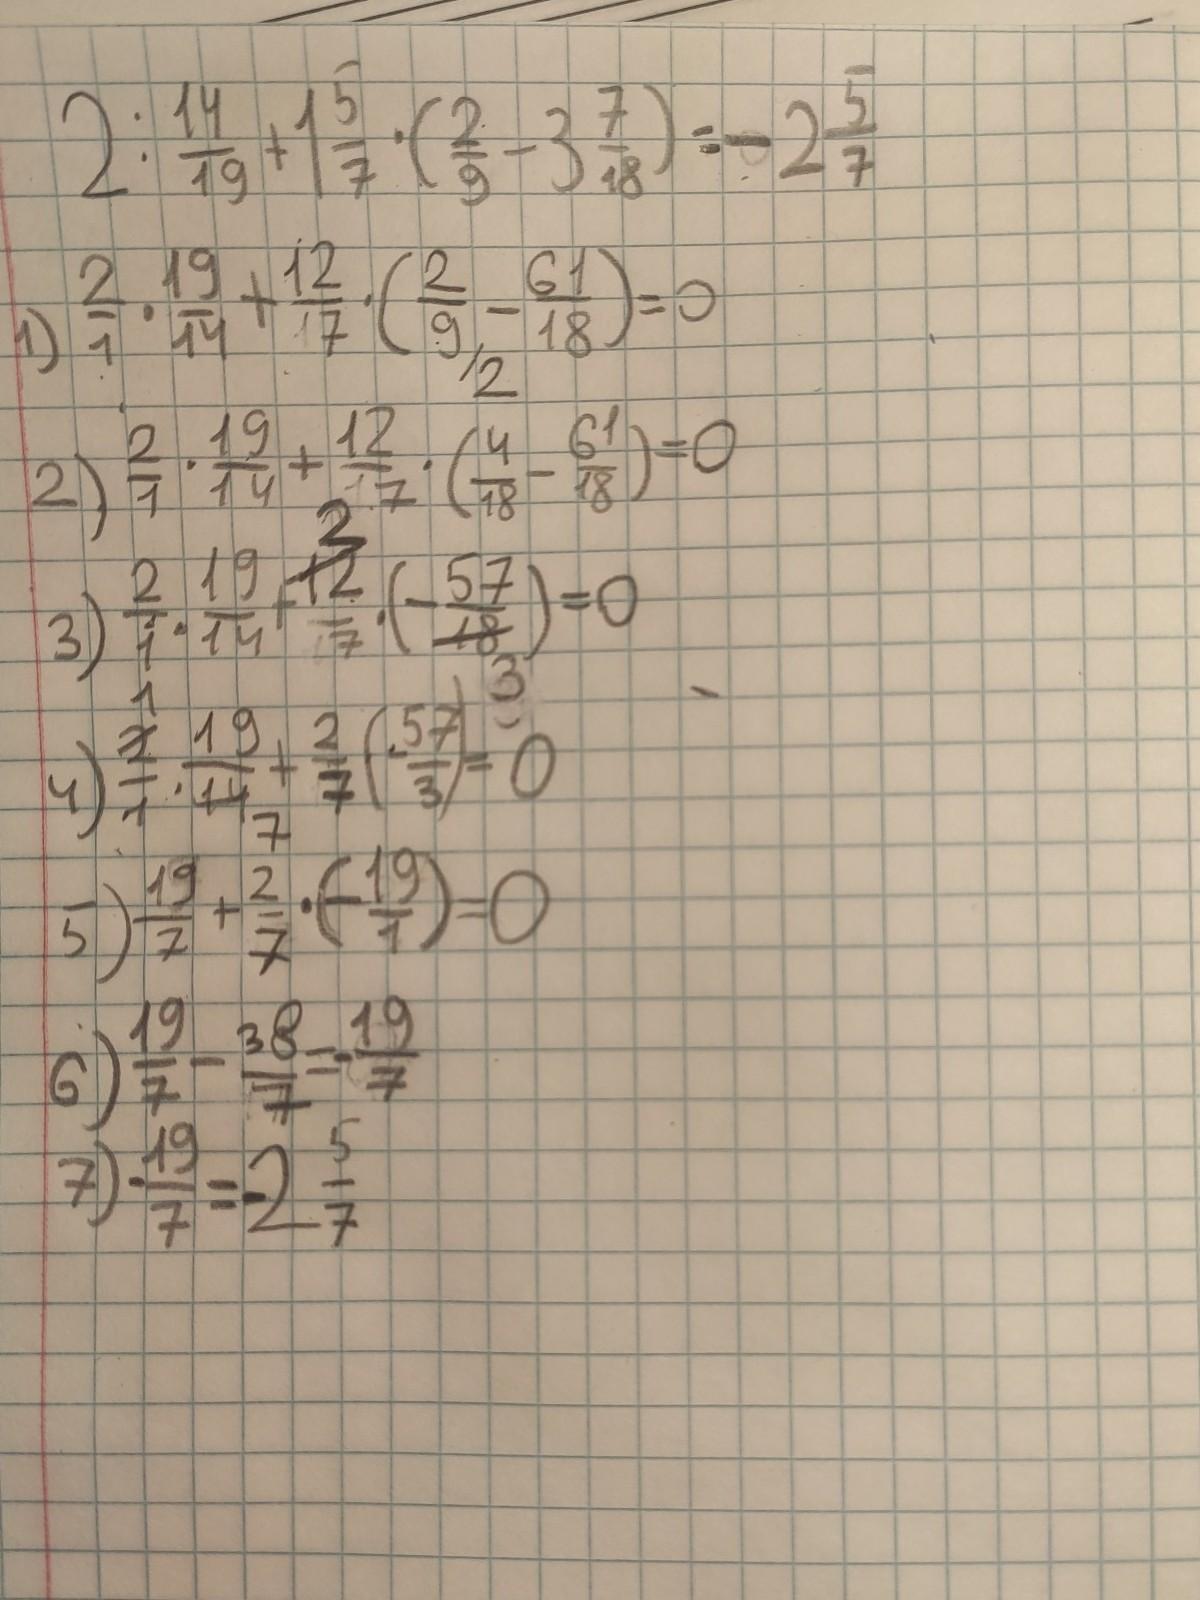 2 : 14/19 + 1 5/7 · (2/9 - 3 7/18) = -2 5/7
1) 2/1 · 19/14 + 12/17 · (2/9 /2 - 61/18) = 0
2) 2/1 · 19/14 + 12/17 · (4/18 - 61/18) = 0
3) 2/1 · 19/14 + 12/17 2 · (-57/18 3) = 0
4) 2/1 1 · 19/14 7 + 2/7 (-57/3) = 0
5) 19/7 + 2/7 · (-19/1) = 0
6) 19/7 - 38/7 = -19/7
7) -19/7 = -2 5/7